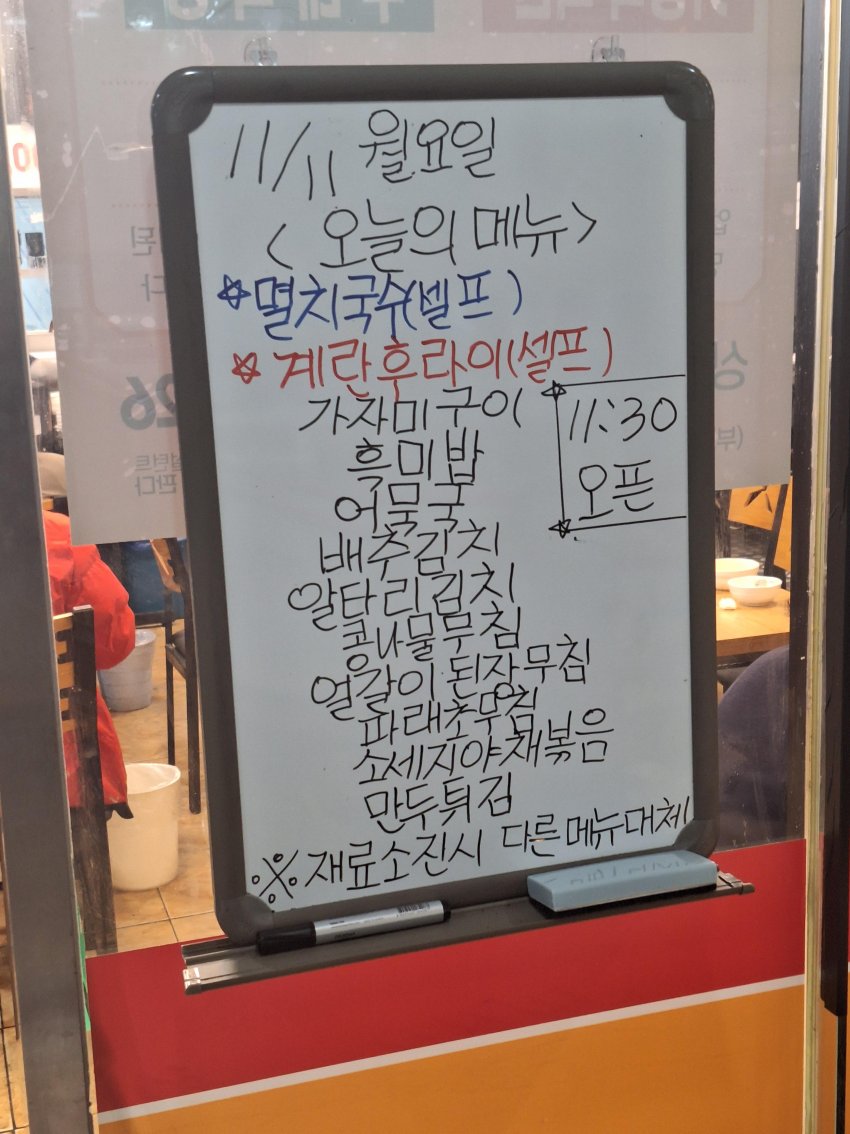 11/11 월요일
< 오늘의 메뉴>
☆멸치국수(셀프)
☆계란후라이(셀프)
가자미구이
흑미밥
어묵국
배추김치
알타리김치
콩나물무침
얼갈이된장무침
파래초무침
소세지야채볶음
만두튀김
※재료소진시 다른메뉴대체
11:30
오픈
26